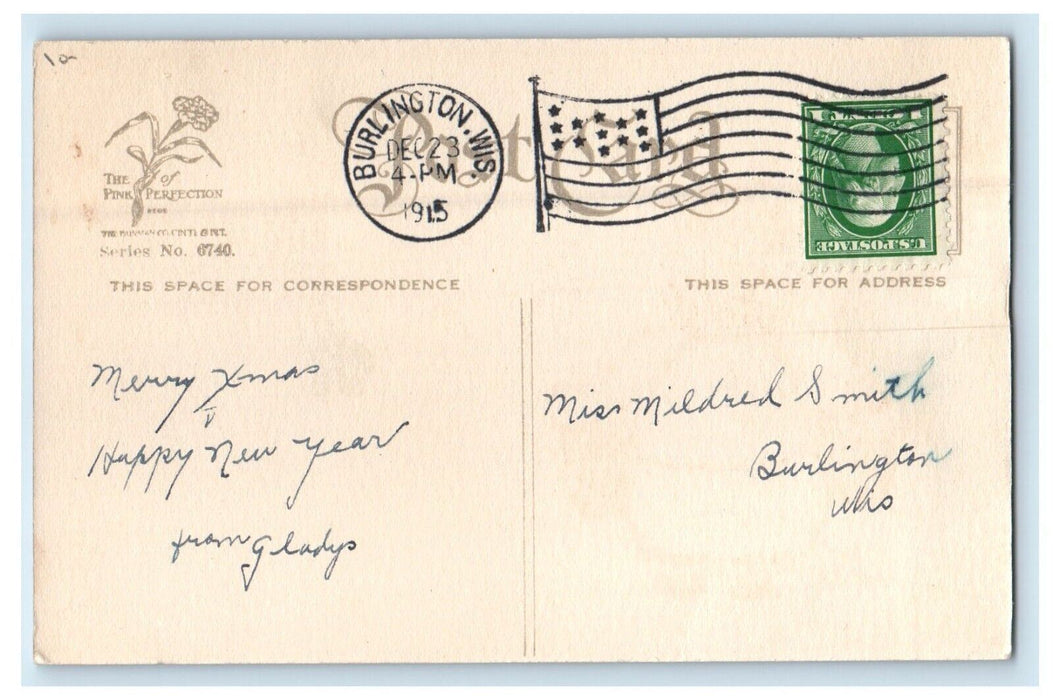 10
BURLINGTON, WIS.
DEC 23
4-PM
1915
Post Card
U.S. POSTAGE
THE of
PINK PERFECTION
Series No. 6740.
THIS SPACE FOR CORRESPONDENCE
THIS SPACE FOR ADDRESS
Merry Xmas
Happy New Year
from Gladys
Miss Mildred Smith
Burlington
Wis